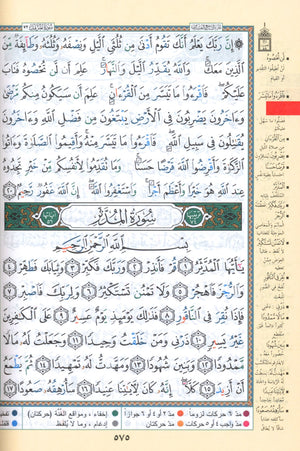 إِنَّ رَبَّكَ يَعْلَمُ أَنَّكَ تَقُومُ أَدْنَىٰ مِن ثُلُثَيِ ٱلَّيْلِ وَنِصْفَهُۥ وَثُلُثَهُۥ وَطَآئِفَةٌ مِّنَ
ٱلَّذِينَ مَعَكَ ۚ وَٱللَّهُ يُقَدِّرُ ٱلَّيْلَ وَٱلنَّهَارَ ۚ عَلِمَ أَن لَّن تُحْصُوهُ فَتَابَ
عَلَيْكُمْ ۖ فَٱقْرَءُوا۟ مَا تَيَسَّرَ مِنَ ٱلْقُرْءَانِ ۚ عَلِمَ أَن سَيَكُونُ مِنكُم مَّرْضَىٰ
وَءَاخَرُونَ يَضْرِبُونَ فِى ٱلْأَرْضِ يَبْتَغُونَ مِن فَضْلِ ٱللَّهِ ۙ وَءَاخَرُونَ
يُقَٰتِلُونَ فِى سَبِيلِ ٱللَّهِ ۖ فَٱقْرَءُوا۟ مَا تَيَسَّرَ مِنْهُ ۚ وَأَقِيمُوا۟ ٱلصَّلَوٰةَ وَءَاتُوا۟
ٱلزَّكَوٰةَ وَأَقْرِضُوا۟ ٱللَّهَ قَرْضًا حَسَنًا ۚ وَمَا تُقَدِّمُوا۟ لِأَنفُسِكُم مِّنْ خَيْرٍ تَجِدُوهُ
عِندَ ٱللَّهِ هُوَ خَيْرًا وَأَعْظَمَ أَجْرًا ۚ وَٱسْتَغْفِرُوا۟ ٱللَّهَ ۖ إِنَّ ٱللَّهَ غَفُورٌ رَّحِيمٌۢ ٢٠
سُورَةُ المُدَّثِّرِ
بِسْمِ ٱللَّهِ ٱلرَّحْمَٰنِ ٱلرَّحِيمِ
يَٰٓأَيُّهَا ٱلْمُدَّثِّرُ ١ قُمْ فَأَنذِرْ ٢ وَرَبَّكَ فَكَبِّرْ ٣ وَثِيَابَكَ فَطَهِّرْ ٤
وَٱلرُّجْزَ فَٱهْجُرْ ٥ وَلَا تَمْنُن تَسْتَكْثِرُ ٦ وَلِرَبِّكَ فَٱصْبِرْ ٧
فَإِذَا نُقِرَ فِى ٱلنَّاقُورِ ٨ فَذَٰلِكَ يَوْمَئِذٍ يَوْمٌ عَسِيرٌ ٩ عَلَى ٱلْكَٰفِرِينَ
غَيْرُ يَسِيرٍ ١٠ ذَرْنِى وَمَنْ خَلَقْتُ وَحِيدًا ١١ وَجَعَلْتُ لَهُۥ مَالًا
مَّمْدُودًا ١٢ وَبَنِينَ شُهُودًا ١٣ وَمَهَّدتُّ لَهُۥ تَمْهِيدًا ١٤ ثُمَّ يَطْمَعُ
أَنْ أَزِيدَ ١٥ كَلَّآ ۖ إِنَّهُۥ كَانَ لِءَايَٰتِنَا عَنِيدًا ١٦ سَأُرْهِقُهُۥ صَعُودًا ١٧
مدّ ٦ حركات لزوماً
مدّ ٢ أو ٤ أو ٦ جوازاً
إخفاء، ومواقع الغُنَّة (حركتان)
مدّ واجب ٤ أو ٥ حركات
مدّ حركتان
إدغام، وما لا يُلفَظ
٥٧٥